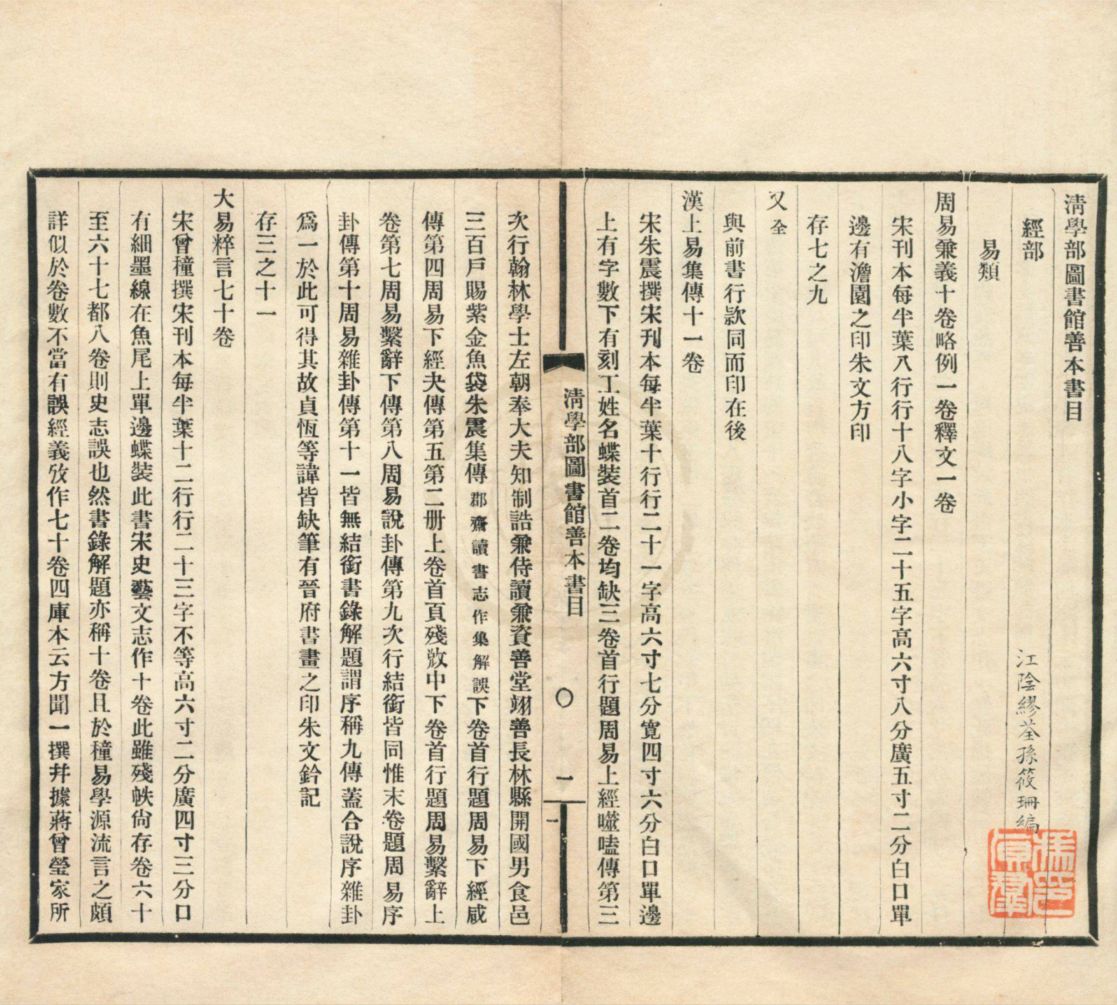 淸學部圖書館善本書目
經部
江陰繆荃孫筱珊編
易類
周易兼義十卷略例一卷釋文一卷
宋刊本每半葉八行行十八字小字二十五字高六寸八分廣五寸二分白口單
邊有澹園之印朱文方印
存七之九
又全
與前書行款同而印在後
漢上易集傳十一卷
宋朱震撰宋刊本每半葉十行行二十一字高六寸七分寬四寸六分白口單邊
上有字數下有刻工姓名蝶裝首二卷均缺三卷首行題周易上經噬嗑傳第三
淸學部圖書館善本書目
〇
一
次行翰林學士左朝奉大夫知制誥兼侍讀兼資善堂翊善長林縣開國男食邑
三百戶賜紫金魚袋朱震集傳郡齋讀書志作集解誤下卷首行題周易下經咸
傳第四周易下經夬傳第五第二册上卷首頁殘敓中下卷首行題周易繫辭上
卷第七周易繫辭下傳第八周易說卦傳第九次行結銜皆同惟末卷題周易序
卦傳第十周易雜卦傳第十一皆無結銜書錄解題謂序稱九傳蓋合說序雜卦
爲一於此可得其故貞恆等諱皆缺筆有晉府書畫之印朱文鈐記
存三之十一
大易粹言七十卷
宋曾穜撰宋刊本每半葉十二行行二十三字不等高六寸二分廣四寸三分口
有細墨線在魚尾上單邊蝶裝此書宋史藝文志作十卷此雖殘帙尙存卷六十
至六十七都八卷則史志誤也然書錄解題亦稱十卷且於穜易學源流言之頗
詳似於卷數不當有誤經義攷作七十卷四庫本云方聞一撰幷據蔣曾瑩家所